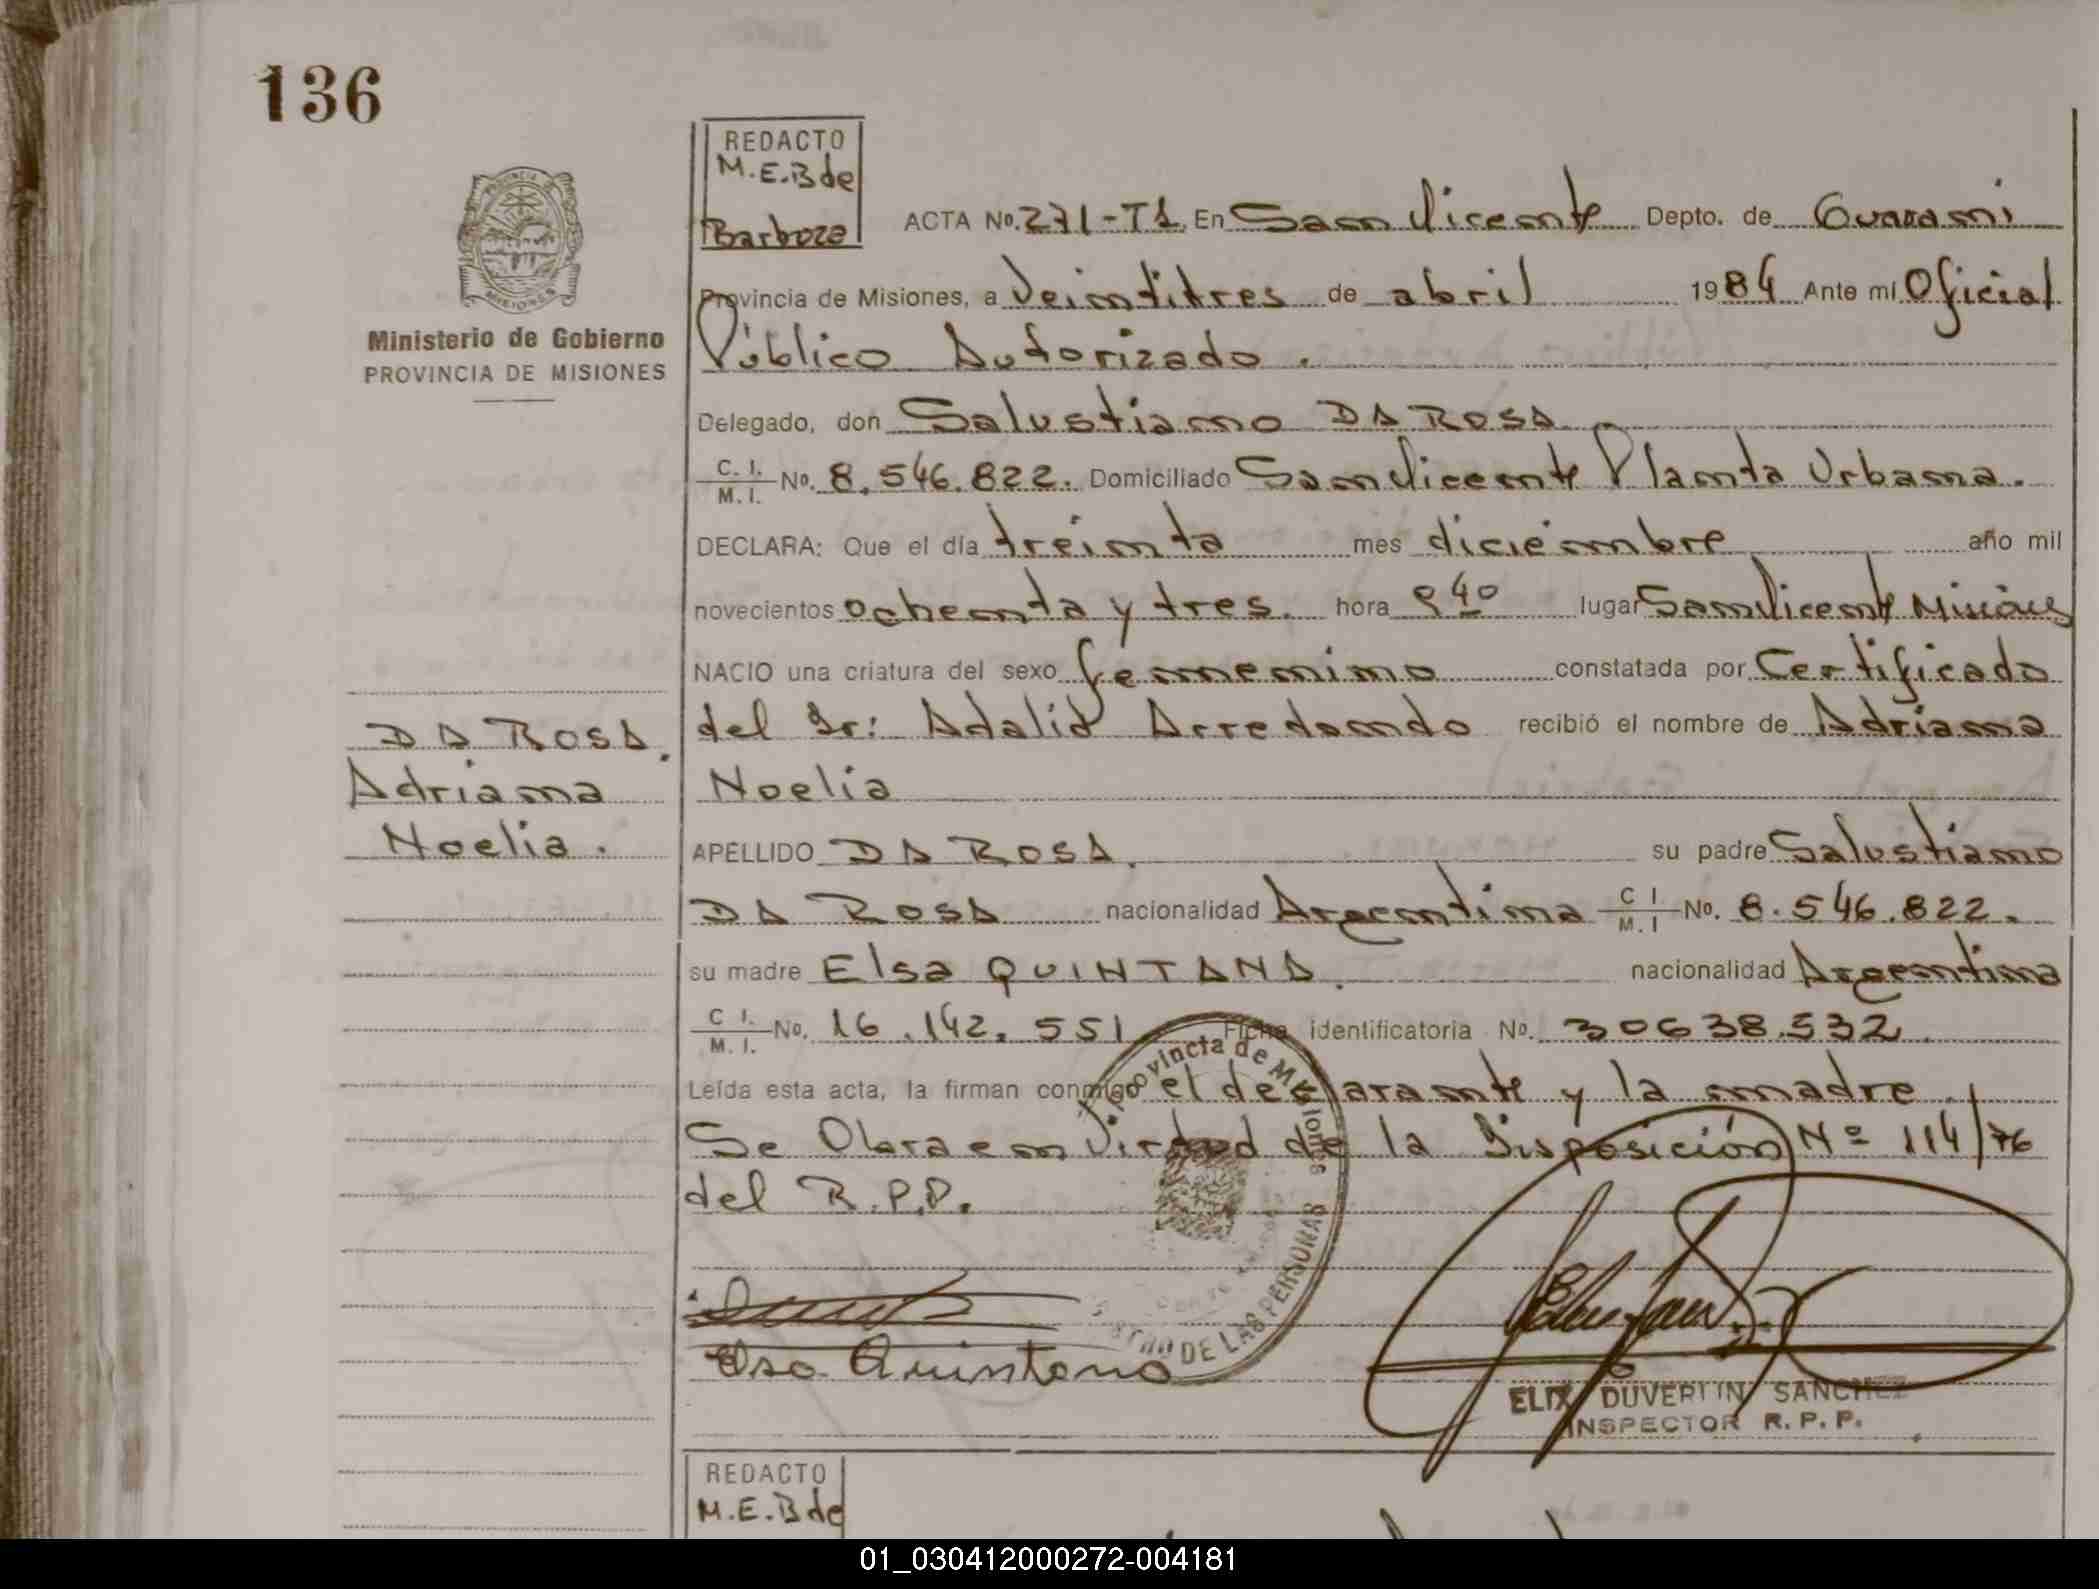 136
REDACTO
M.E.B de
Barboza
ACTA No. 271-T1 En San Vicente Depto. de Guarani
Provincia de Misiones, a Veintitres de abril 1984 Ante mi Oficial
Público Autorizado.
Ministerio de Gobierno
PROVINCIA DE MISIONES
Delegado, don Salustiano DA ROSA
C. I. / M. I. No. 8.546.822. Domiciliado San Vicente Planta Urbana.
DECLARA: Que el día treinta mes diciembre año mil
novecientos ochenta y tres. hora 9 40 lugar San Vicente Misiones
NACIO una criatura del sexo femenino constatada por Certificado
del Sr: Adalid Arredondo recibió el nombre de Adriana
Noelia
DA ROSA.
Adriana
Noelia.
APELLIDO DA ROSA. su padre Salustiano
DA ROSA nacionalidad Argentina C I. / M. I No. 8.546.822.
su madre Elsa QUINTANA. nacionalidad Argentina
C I. / M. I. No. 16.142.551 Ficha identificatoria No. 30638.532
Leída esta acta, la firman conmigo el declarante y la madre.
Se Obra en Virtud de la Disposición Nº 114/76
del R.P.P.
Provincia de Misiones
DE LAS PERSONAS
Elsa Quintana
ELIX DUVERLIN SANCHEZ
INSPECTOR R. P. P.
REDACTO
M.E.B de
01_030412000272-004181